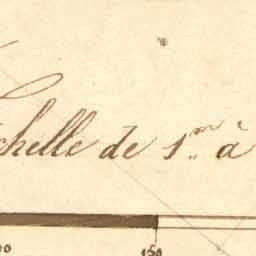 chelle de 1.m à
150